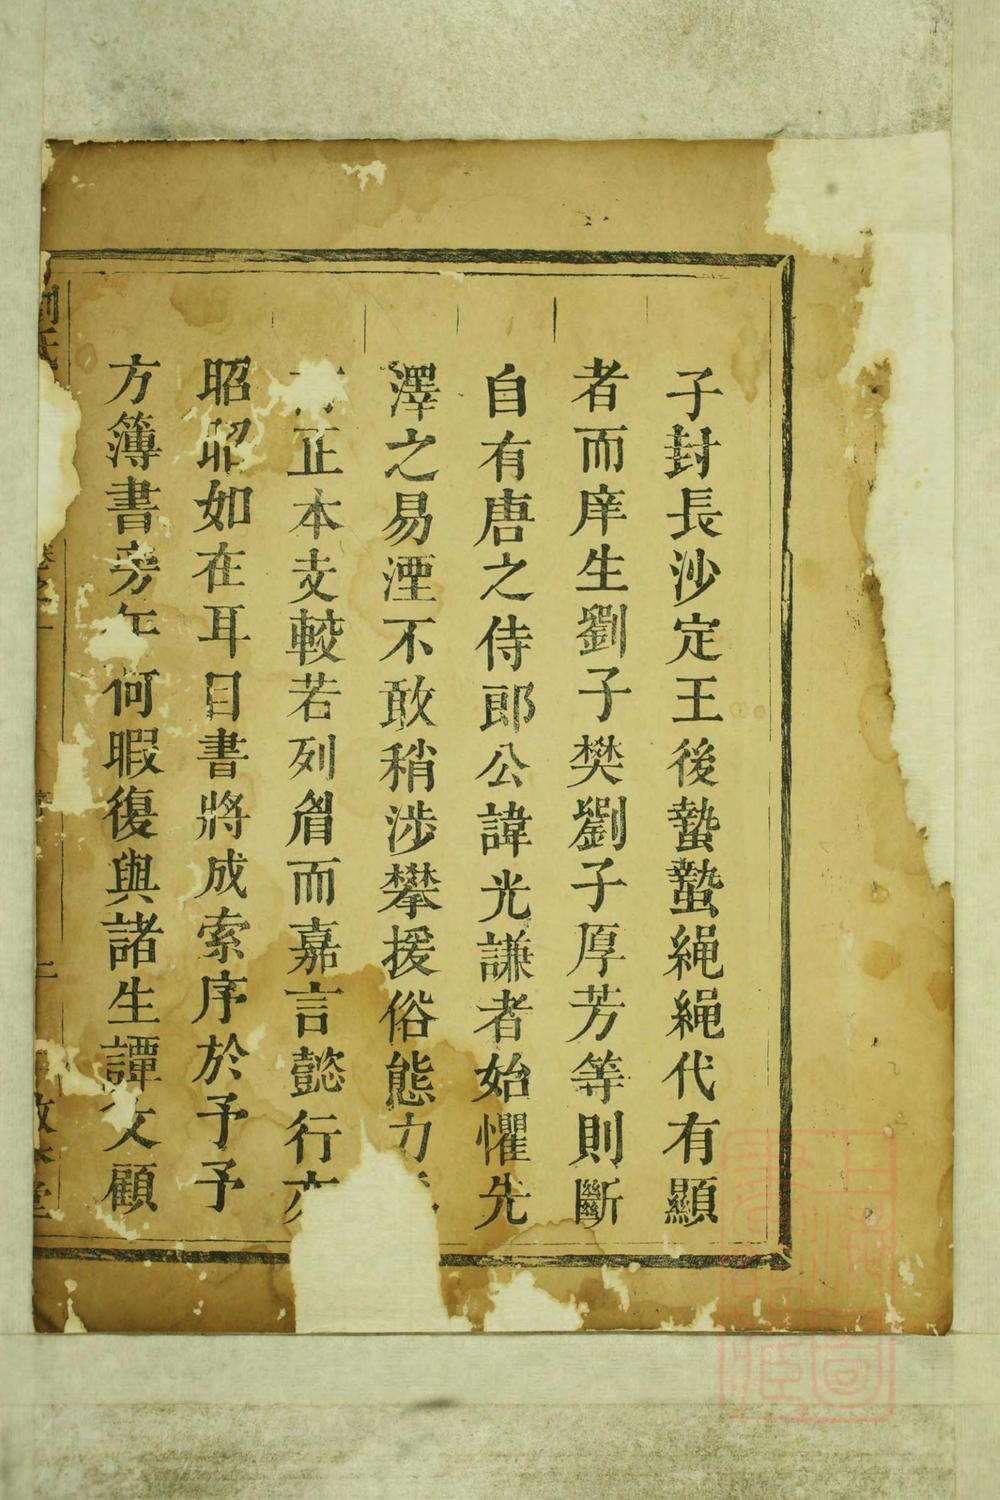 子封長沙定王後蟄蟄繩繩代有顯
者而庠生劉子樊劉子厚芳等則斷
自有唐之侍郎公諱光謙者始懼先
澤之易湮不敢稍涉攀援俗態力
正本支較若列眉而嘉言懿行亦
昭昭如在耳目書將成索序於予予
方簿書旁午何暇復與諸生譚文顧
劉氏
卷之一
二
敦本堂